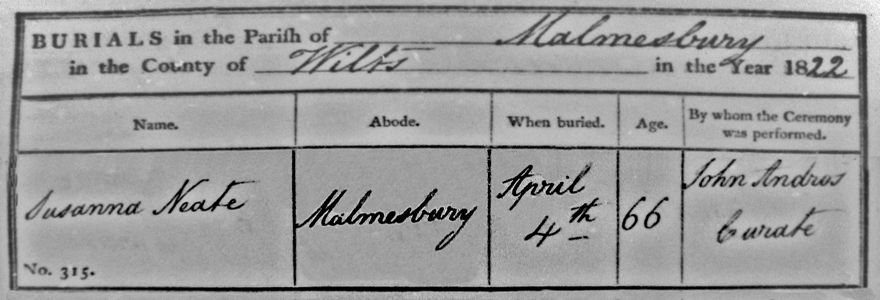 BURIALS in the Parish of Malmesbury
in the County of Wilts in the Year 1822
Name. Abode. When buried. Age. By whom the Ceremony was performed.
Susanna Neate Malmesbury April 4th 66 John Andros Curate
No. 315.